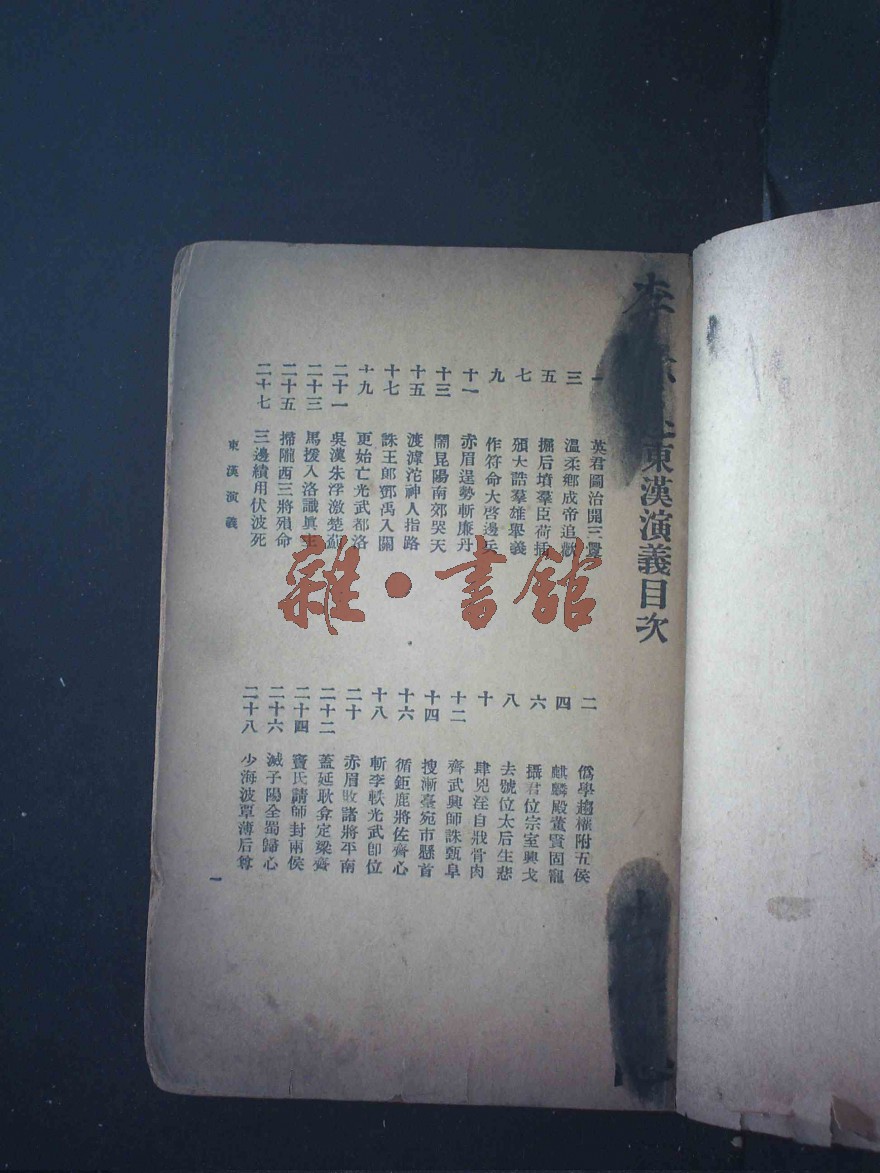 東漢演義目次
一 英君圖治開三釁
二 僞學趨權附五侯
三 溫柔鄉成帝追歡
四 麒麟殿董賢固寵
五 掘后墳羣臣荷插
六 攝君位宗室興戈
七 頒大誥羣雄舉義
八 去號位太后生悲
九 作符命大啓邊兵
十 肆兇淫自戕骨肉
十一 赤眉逞勢斬廉丹
十二 齊武興師誅甄阜
十三 鬧昆陽南郊哭天
十四 搜漸臺宛市懸首
十五 渡滹沱神人指路
十六 循鉅鹿將佐齊心
十七 誅王郎鄧禹入關
十八 斬李軼光武卽位
十九 更始亡光武都洛
二十 赤眉敗諸將平南
二十一 吳漢朱浮激楚薊
二十二 蓋延耿弇定梁齊
二十三 馬援入洛識眞主
二十四 竇氏請師封兩侯
二十五 掃隴西三將殞命
二十六 滅子陽全蜀歸心
二十七 三邊績用伏波死
二十八 少海波覃薄后尊
東漢演義
一
雜·書館